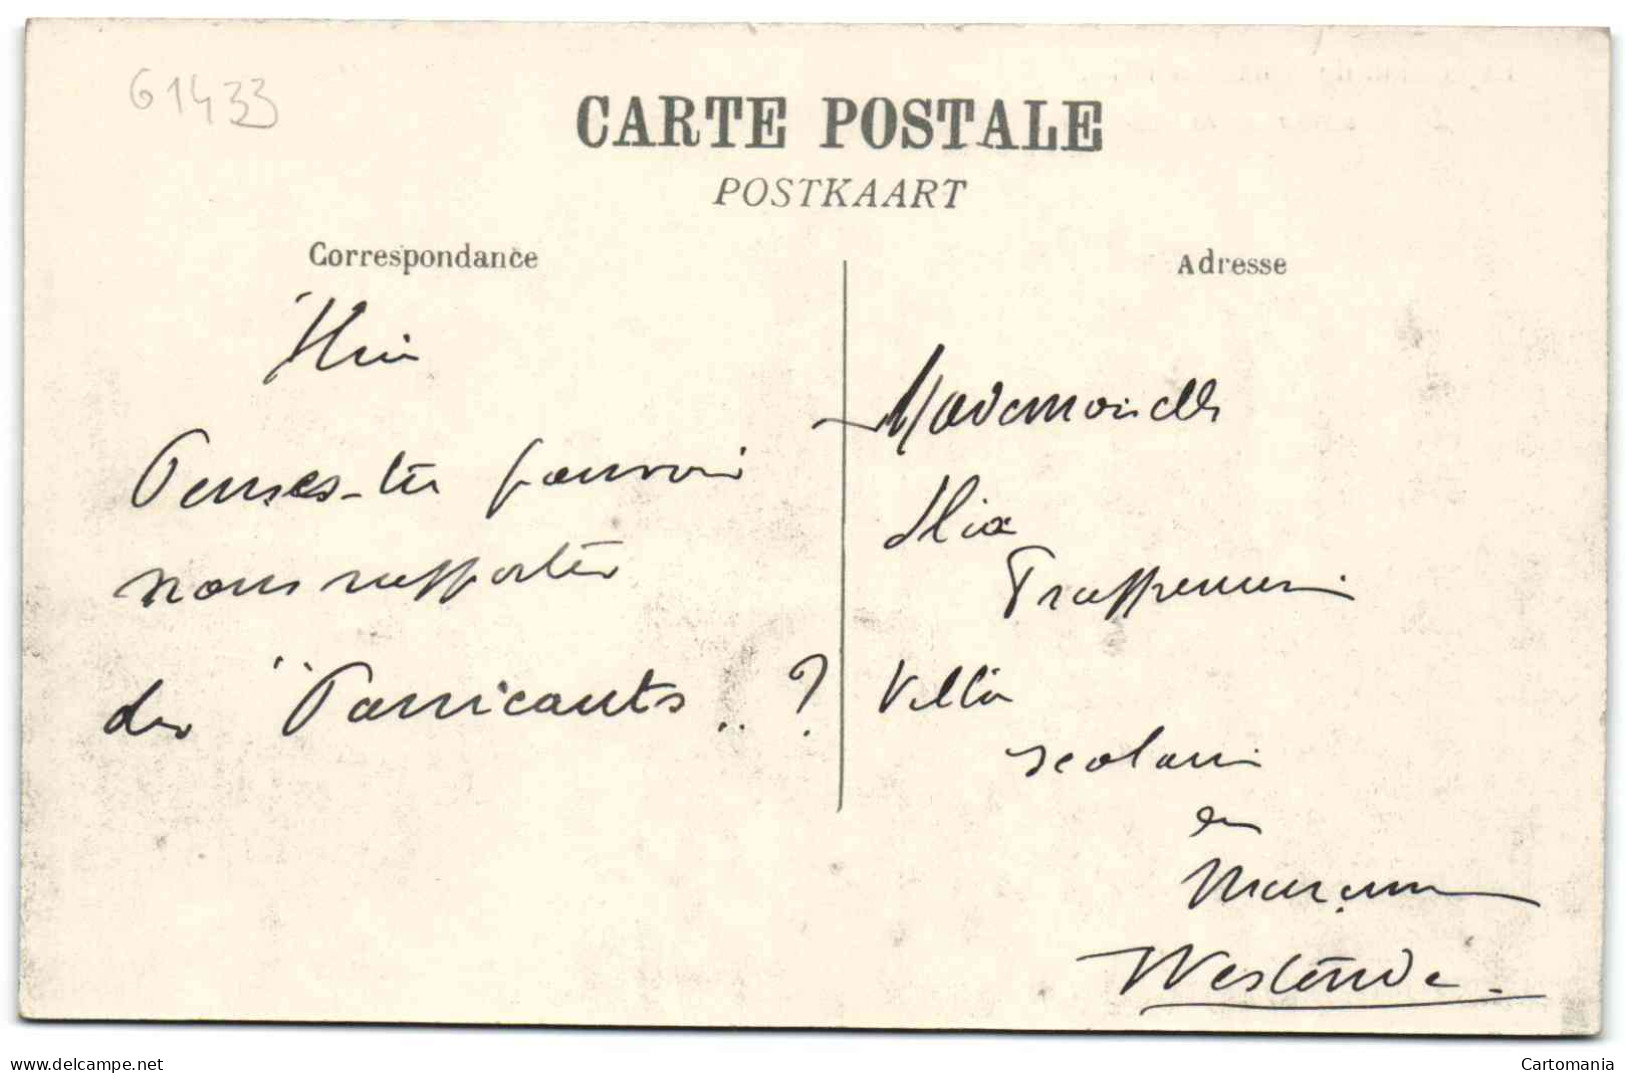 61433
CARTE POSTALE
POSTKAART
Correspondance
Adresse
Penses-tu pouvoir
nous rapporter
des "Parricants..?
Mademoiselle
Villa
scolaire
en
Westende.
delcampe.net
Cartomania